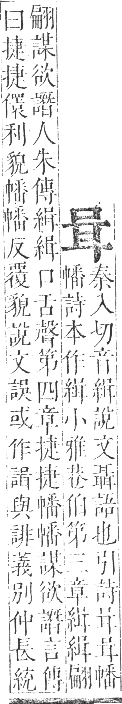 咠
秦入切音緝說文聶語也引詩咠咠幡
幡詩本作緝小雅巷伯第三章緝緝翩
翩謀欲譖人朱傳緝緝口舌聲第四章捷捷幡幡謀欲譖言傳
曰捷捷儇利貌幡幡反覆貌說文誤或作與誹義別仲長統